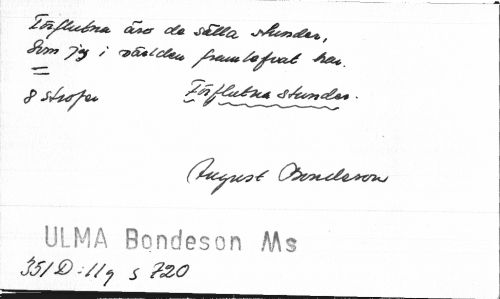 Förflutna äro de sälla stunder,
Som jag i världen framlefvat har.
=
8 strofer Förflutna stunder.
August Bondeson
ULMA Bondeson Ms
351 D:11q s 720